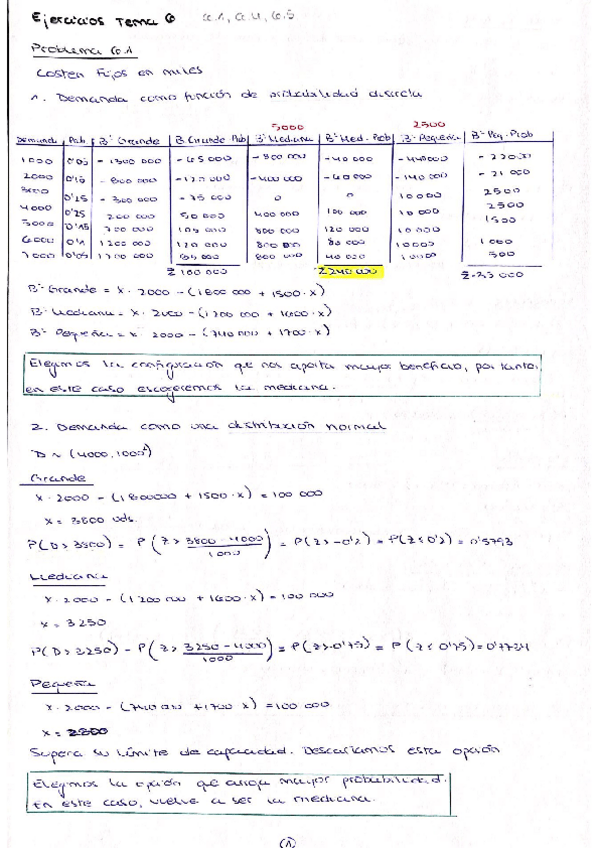 Ejercicios Tema 6 6.1, 6.4, 6.5
Problema 6.1
Costen Fijos en miles
1. Demanda como función de probabilidad discreta
5000 2500
Demanda Pab Bº Grande B Grande Pab Bº Mediana Bº Med. Pab Bº Pequeña Bº Peq. Prob
1000 0'05 - 1300 000 - 65 000 - 800 000 - 40 000 - 440000 - 22000
2000 0'15 - 800 000 - 120 000 - 400 000 - 60 000 - 140 000 - 21 000
3000 0'25 - 300 000 - 75 000 0 0 10000 2500
4000 0'25 200 000 50 000 400 000 100 000 10 000 2500
5000 0'15 700 000 105 000 800 000 120 000 10 000 1500
6000 0'1 1200 000 120 000 800 000 80 000 10000 1000
7000 0'05 1700 000 85 000 800 000 40 000 10000 500
Σ 100 000 Σ 240 000 Σ -35 000
Bº Grande = x · 2000 - (1800 000 + 1500 · x)
Bº Mediana = x · 2000 - (1200 000 + 1600 · x)
Bº Pequeña = x · 2000 - (740 000 + 1700 · x)
Elegimos la configuración que nos aporta mayor beneficio, por tanto,
en este caso escogeremos la mediana.
2. Demanda como una distribución normal
D ~ (4000, 1000²)
Grande
x · 2000 - (1800000 + 1500 · x) = 100 000
x = 3800 uds.
P(D > 3800) = P(Z > 3800 - 4000 / 1000) = P(Z > -0'2) = P(Z ≤ 0'2) = 0'5793
Mediana
x · 2000 - (1200 000 + 1600 · x) = 100 000
x = 3250
P(D > 3250) - P(Z > 3250 - 4000 / 1000) = P(Z > -0'75) = P(Z ≤ 0'75) = 0'7734
Pequeña
x · 2000 - (740 000 + 1700 x) = 100 000
x = 2800
Supera su límite de capacidad. Descartamos esta opción
Elegimos la opción que arroja mayor probabilidad.
En este caso, vuelve a ser la mediana.
(1)